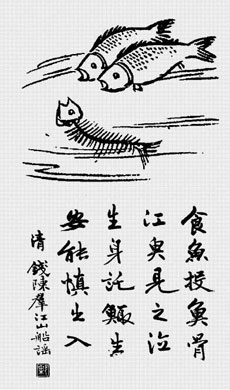 食魚投魚骨
江魚見之泣
生身託鯫生
安能慎出入
清 錢陳羣江山船謠